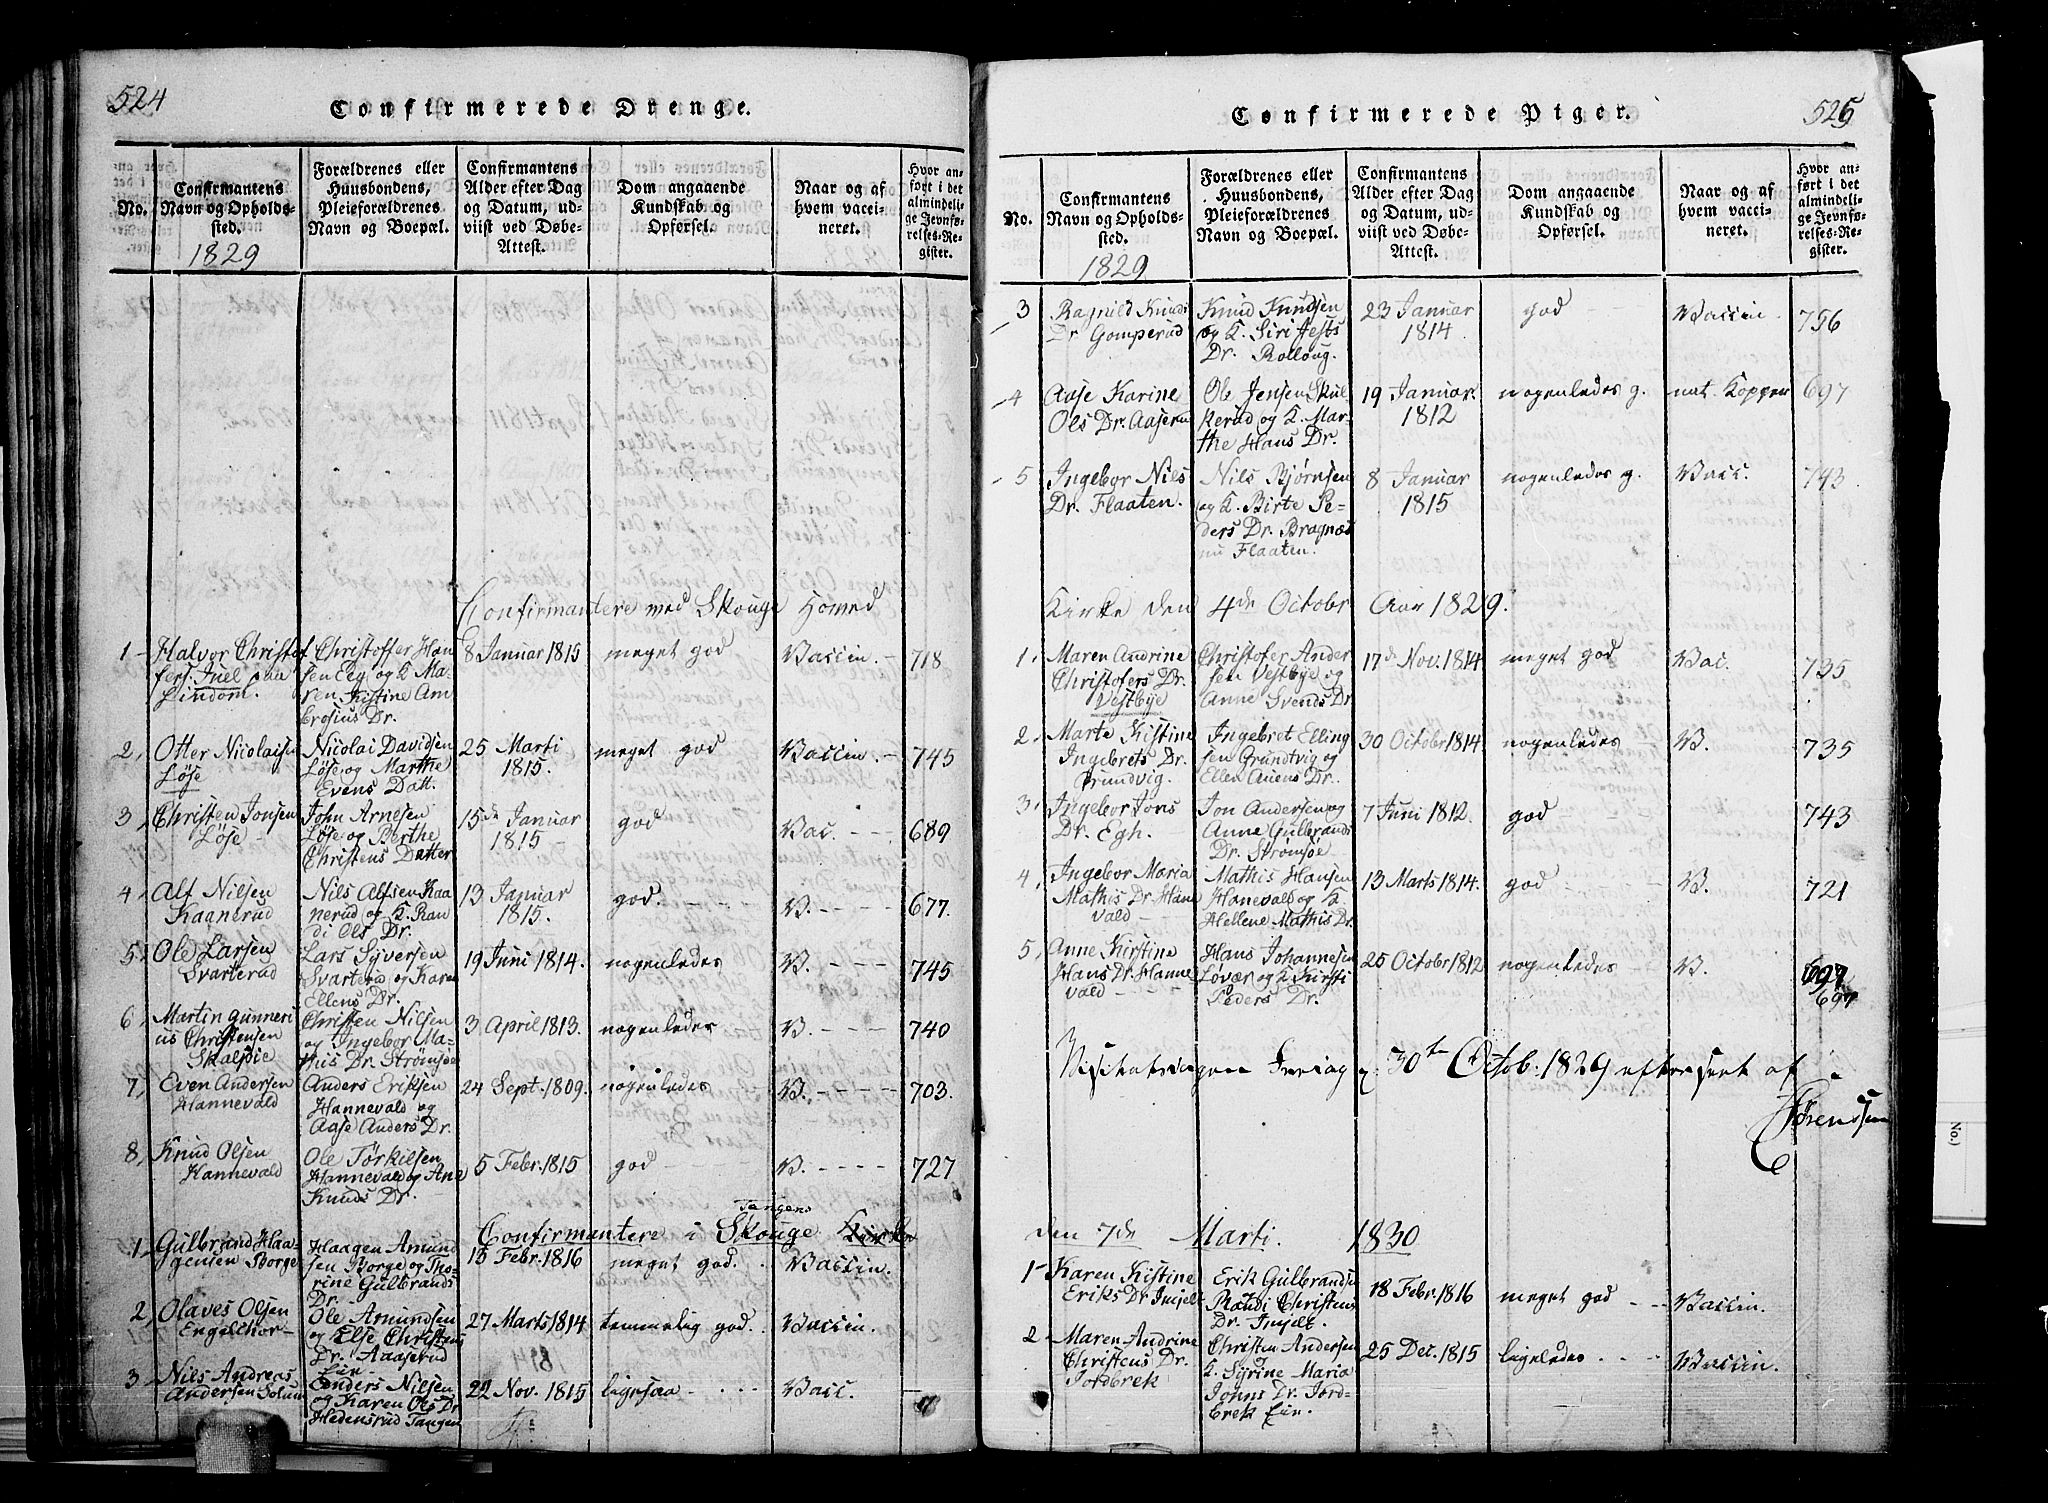 524
Confirmerede Drenge.
No.
Confirmantens
Navn og Opholds-
sted.
1829
Forældrenes eller
Huusbondens,
Pleieforældrenes
Navn og Boepæl.
Confirmantens
Alder efter Dag
og Datum, ud-
viist ved Døbe-
Attest.
Dom angaaende
Kundskab og
Opførsel.
Naar og af
hvem vacci-
neret.
Hvor an-
ført i det
almindeli-
ge Jevnfø-
relses-Re-
gister.
Confirmantere med Skouge Hoved
1 Halvor Christof
fers. Juel paa
Lindom.
Christoffer Han
sen Eeg og K Ma-
ren Kistine Am
brosius Dr.
8 Januar 1815
meget god
Vaccin.
718
2, Otter Nicolaisen
Løse
Nicolai Davidsen
Løse og Marthe
Evens Datt.
25 Marti
1815.
meget god
Vaccin.
745
3, Christen Jonsen
Løse
John Arnesen
Løse og Berthe
Christens Datter
15de Januar
1815
god
Vac.
689
4, Alf Nilsen
Kaanerud
Nils Alfsen Kaa
nerud og K. Ran
di Ols Dr.
13 Januar
1815.
god.
V.
677.
5, Ole Larsen
Svarterud
Lars Syversen
Svarterud og Karen
Ellens Dr.
19 Juni 1814.
nogenledes
V.
745
6, Martin Gunneri
us Christensen
Skalsdie
Christen Nilsen
og Ingebor Ma-
this Dr. Strømsøe
3 April 1813.
nogenledes
V.
740
7, Even Andersen
Hannevald
Anders Eriksen
Hannevald og
Aase Anders Dr.
24 Sept. 1809.
nogenledes
V.
703.
8, Knud Olsen
Hannevald
Ole Tørkilsen
Hannevald og Ane
Knuds Dr.
5 Febr. 1815
god
V.
727
Tangens
Confirmantere i Skouge Kirke
1, Gulbrand Haa-
gensen Borge
Haagen Amund
sen Borge og Tho-
rine Gulbrands
Dr.
15 Febr. 1816
meget god.
Vaccin.
2, Olaves Olsen
Engelchor
Ole Amundsen
og Else Christens
Dr. Aaaserud
Eie
27 Marts 1814
temmelig god.
Vaccin.
3 Nils Andreas
Andersen Solum
Enders Nilsen
og Karen Ols Dr
Hedensrud Tangen
22 Nov. 1815
ligesaa
Vacc.
525
Confirmerede Piger.
No.
Confirmantens
Navn og Opholds-
sted.
1829
Forældrenes eller
Huusbondens,
Pleieforældrenes
Navn og Boepæl.
Confirmantens
Alder efter Dag
og Datum, ud-
viist ved Døbe-
Attest.
Dom angaaende
Kundskab og
Opførsel.
Naar og af
hvem vacci-
neret.
Hvor an-
ført i det
almindeli-
ge Jevnfø-
relses-Re-
gister.
3 Ragnild Knuds
Dr Gomperud
Knud Knudsen
og K. Siri Jests
Dr. Rolloug.
23 Januar
1814
god
Vaccin.
756
4 Aase Karine
Ols Dr. Aaserud
Ole Jensen Skul
kerud og K. Mar-
the Hans Dr.
19 Januar.
1812
nogenledes g.
nat. Kopper
697
5 Ingebor Nils
Dr. Flaaten.
Nils Bjørnsen
og K. Birte Pe-
ders Dr. Bragnæs
nu Flaaten.
8 Januar
1815
nogenledes g.
Vacc.
743
Kirke den 4de Octobr Aar 1829.
1, Maren Andrine
Christofers Dr.
Vestbye
Christofer Ander
sen Vestbye og
Anne Svends Dr
17de Nov. 1814
meget god
Vac.
735
2, Marte Kistine
Ingebrets Dr.
Grundvig.
Ingebret Elling
sen Grundtvig og
Ellen Auens Dr.
30 October 1814
nogenledes
V.
735
3, Ingebor Jons
Dr. Egh.
Jon Andersen og
Anne Gulbrands
Dr. Strømsøe
7 Juni 1812.
god
743
4, Ingebor Maria
Mathis Dr Hanne
vald
Mathis Hansen
Hanevald og K
Hellene Mathis Dr.
13 Marts 1814.
god
V.
721
5, Anne Kirstine
Hans Dr. Hanne
vald
Hans Johannesen
Løvær og K Kirsti
Peders Dr.
25 October 1812
nogenledes
V.
697
697
30te Octob. 1829 efterseet af
Sørenssen
den 7de Marti. 1830
1 Karen Kistine
Eriks Dr Imjelt
Erik Gulbrandsen
Randi Christens
Dr. Imjelt.
18 Febr. 1816
meget god
Vaccin.
2 Maren Andrine
Christens Dr.
Jordbrek
Christen Andersen
K. Syrine Maria
Johns Dr. Jord-
brek Eie.
25 Dec. 1815
ligeledes
Vaccin.
No)